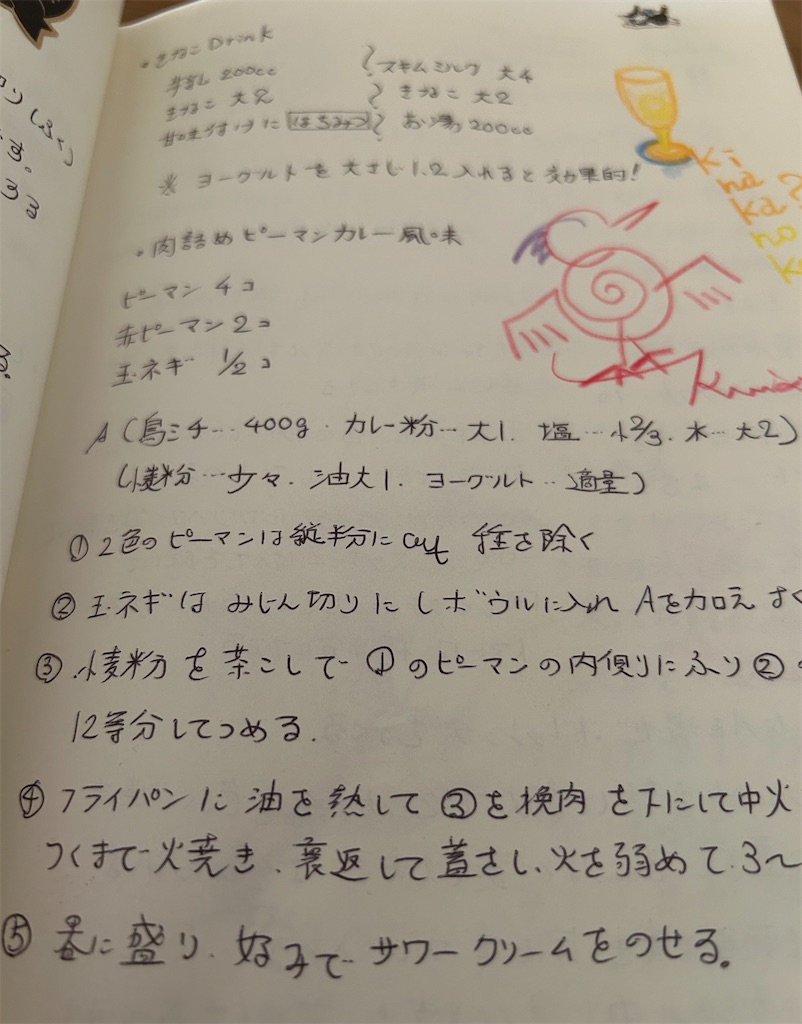 ・きなこ Drink
牛乳 200cc スキムミルク 大4
きなこ 大2 きなこ 大2
甘味付けに はちみつ お湯 200cc
※ ヨーグルトを大さじ1.2入れると効果的!
Ki
na
Ka?
・肉詰めピーマンカレー風味
ピーマン 4コ
赤ピーマン 2コ
玉ネギ 1/2コ
A(鳥ミチ…400g・カレー粉…大1. 塩…小2/3. 水…大2)
(小麦粉…少々. 油大1. ヨーグルト…適量)
① 2色のピーマンは縦半分にcut 種を除く
② 玉ネギはみじん切りにしボウルに入れAを加えよく
③ 小麦粉を茶こしで①のピーマンの内側りにふり②
12等分してつめる.
④ フライパンに油を熱して③を挽肉を下にして中火
つくまで火焼き、裏返して蓋をし、火を弱めて、3〜
⑤ 器に盛り、好みでサワークリームをのせる。